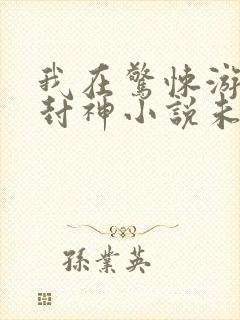 我在驚悚游
封神小說未
孫業英